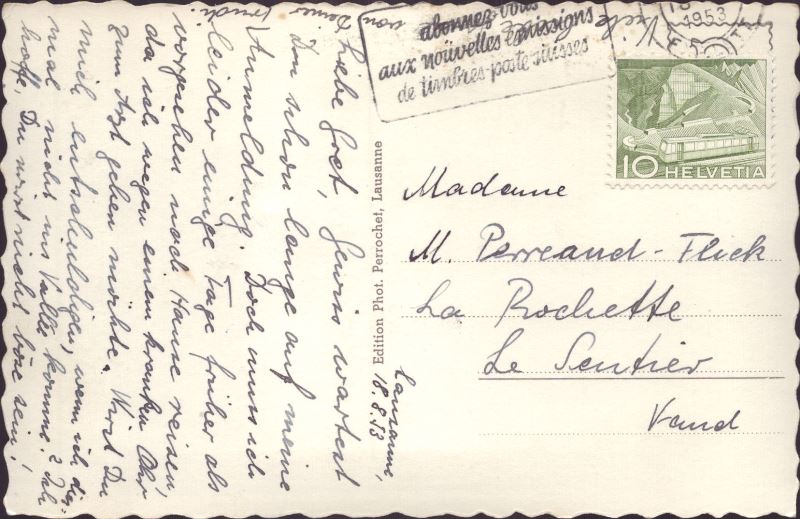 Lausanne,
18.8.53
Liebe Gret, Gewis wartest
Du schon lange auf meine
Anmeldung. Doch muss ich
leider einige Tage früher als
vorgesehen nach Hause reisen,
da ich wegen einem kranken Ohr
zum Arzt gehen möchte. Wirst Du
mich entschuldigen, wenn ich dies
mal nicht ins Vallée komme? Ich
hoffe, Du wirst nicht böse sein!
Viele
von Deiner
Trudi.
Edition Phot. Perrochet, Lausanne
abonnez-vous
aux nouvelles émissions
de timbres-poste suisses
1953
10 HELVETIA
Madame
M. Perreaud-Flick
La Rochette
Le Sentier
Vaud